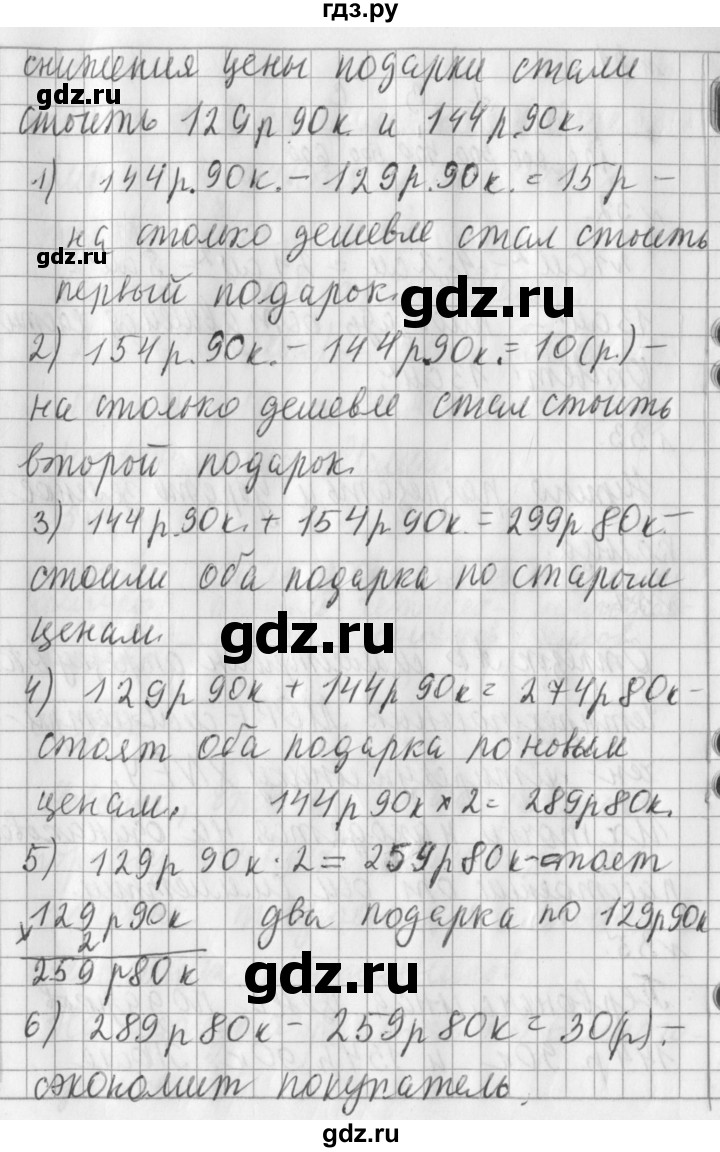 гдз.ру
снижения цены подарки стали
gdz.ru
стоить 129р 90к и 144р.90к.
1) 144р.90к. – 129р.90к. = 15р –
на столько дешевле стал стоить
gdz.ru
первый подарок.
gdz.ru
2) 154р.90к. – 144р.90к. = 10(р.) –
на столько дешевле стал стоить
второй подарок.
3) 144р.90к. + 154р 90к. = 299р 80к. –
стоили оба подарка по старым
ценам.
gdz.ru
4) 129р 90к + 144р 90к = 274р 80к –
стоят оба подарка по новым
ценам. 144р 90к × 2 = 289р 80к.
5) 129р 90к · 2 = 259р 80к – стоят
× 129р 90к два подарка по 129р 90к
2
259р80к
gdz.ru
6) 289р 80к – 259р 80к = 30(р). –
сэкономит покупатель.
gdz.ru